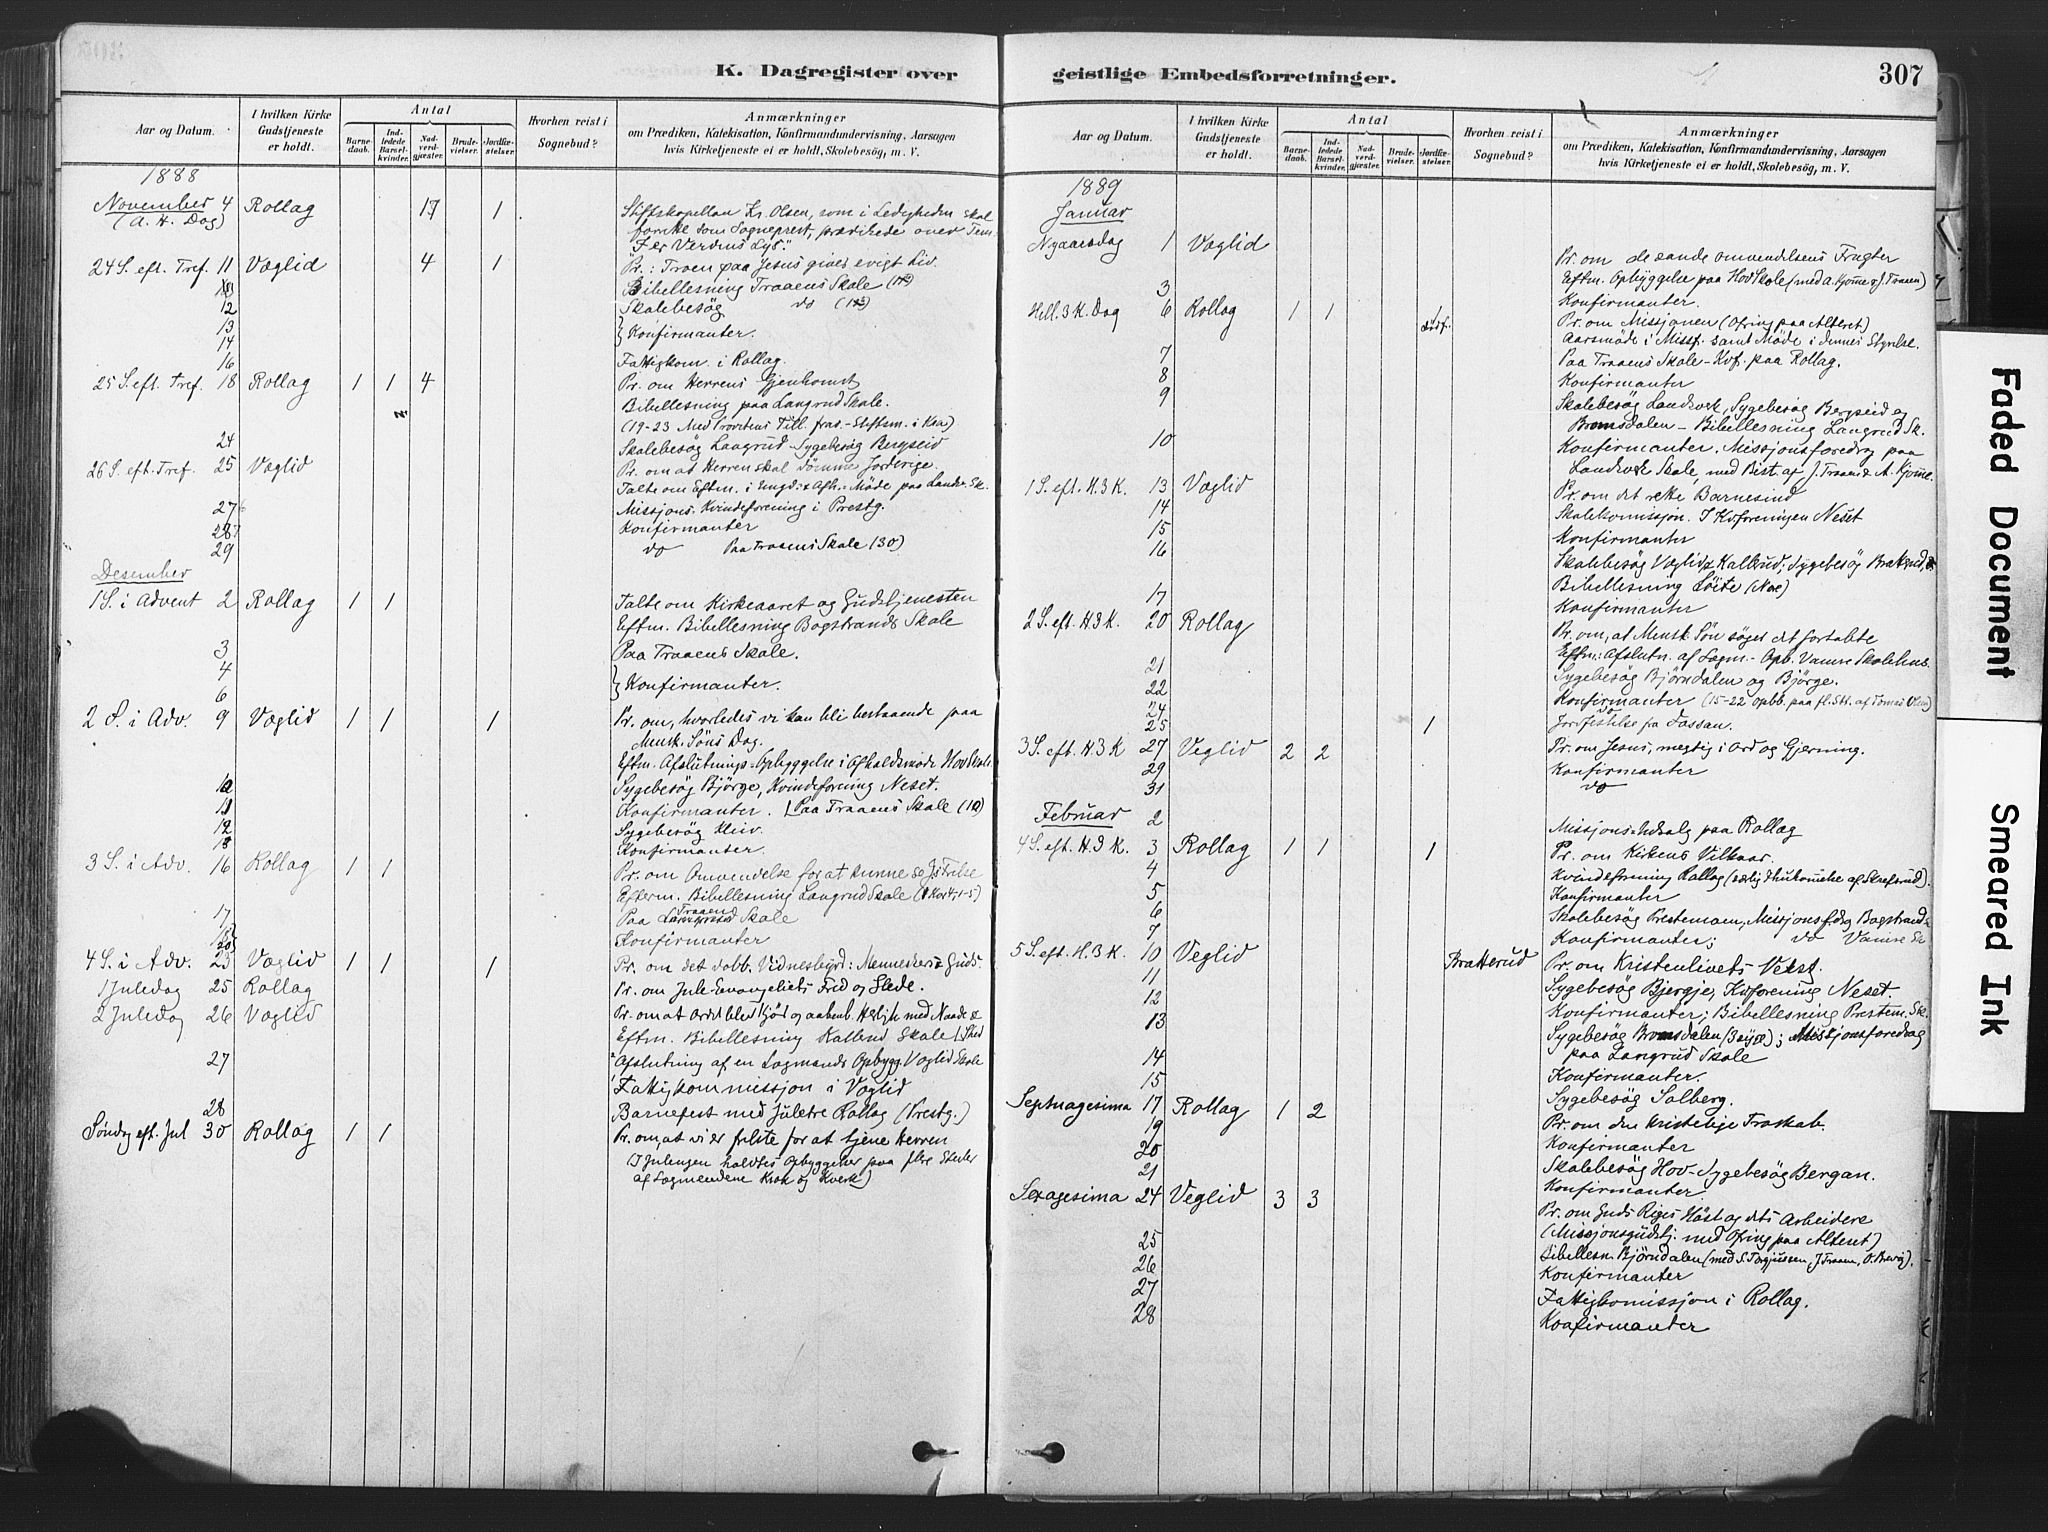 K. Dagregister over
Aar og Datum.
I hvilken Kirke Gudstjeneste er holdt.
Antal
Barnedaab.
Indledede Barselkvinder.
Nadverdgjæster.
Brudevielser.
Jordfæstelser.
Hvorhen reist i Sognebud?
Anmærkninger
om Prædiken, Katekisation, Konfirmandundervisning, Aarsagen
hvis Kirketjeneste ei er holdt, Skolebesøg, m. V.
1888
November 4 Rollag 17 1 Stiftskapellan Kr. Olsen, som i Ledigheden skal
(A. H. Dag) som Sogneprest, prædikede over Tem.
Verdens Lys."
24 S. eft. Tref. 11 Væglid 4 1 Pr.: Troen paa Jesus giver evigt Liv.
Bibellesning Traaens Skole
12 Skolebesøg do
13 } Konfirmanter.
14
16 Fattigkom. i Rollag.
25 S. eft. Tref. 18 Rollag 1 1 4 Pr. om Herrens Gjenkomst
Bibellesning paa Langrud Skole.
(19-23 Med Provstens Till. frav. - Stiftsm. i Kra)
24 Skolebesøg Langrud - Sygebesøg Bergseid
26 S. eft. Tref. 25 Væglid Pr. om at Herren skal dømme Jorderige.
Talte om Eftm. i Ungd. & Afh.-Møde paa Landv. Sk.
27 Missjons-Kvindeforening i Prestg.
28 Konfirmanter
29 do Paa Traaens Skole (30)
Desember
1 S. i Advent 2 Rollag 1 1 Talte om Kirkeaaret og Gudstjenesten
Eftm. Bibellesning Bogstrands Skole
3 Paa Traaens Skole.
4 } Konfirmanter.
6
2 S. i Adv. 9 Væglid 1 1 1 Pr. om, hvorledes vi kan bli bestaaende paa
Mensk. Søns Dag.
Eftm. Afslutnings-Opbyggelse i Afholdsmøde Hov Skole
10 Sygebesøg Bjørge, Kvindeforening Neset.
11 Konfirmanter. Paa Traaens Skole (10)
12 Sygebesøg
13 Konfirmanter.
3 S. i Adv. 16 Rollag 1 1 Pr. om Omvendelse for at kunne se Js Frelse
Efterm. Bibellesning Langrud Skole
17 Paa Traaens Skole
Konfirmanter
4 S. i Adv. 23 Væglid 1 1 1 Pr. om det dobb. Vidnesbyrd: Menneskers & Guds.
1 Juledag 25 Rollag Pr. om Jule-Evangeliets Fred og Glede.
2 Juledag 26 Væglid Pr. om at Ordet blev Kjød og aabenb. Herligh. med Naade &
Eftm. Bibellesning Kallrud Skole
27 Afslutning af en Lægmands Opbygg. Væglid Skole
Fattigkommissjon i Væglid
28 Barnefest med Juletre Rollag (Prestg.)
Søndag eft. Jul 30 Rollag 1 1 Pr. om, at vi er frelste for at tjene Herren
(I Julengen holdtes Opbyggelser paa flere Steder
af Lægmendene Krok og Kverk)
geistlige Embedsforretninger.
307
Aar og Datum.
I hvilken Kirke Gudstjeneste er holdt.
Antal
Barnedaab.
Indledede Barselkvinder.
Nadverdgjæster.
Brudevielser.
Jordfæstelser.
Hvorhen reist i Sognebud?
Anmærkninger
om Prædiken, Katekisation, Konfirmandundervisning, Aarsagen
hvis Kirketjeneste ei er holdt, Skolebesøg, m. V.
1889
Januar
Nyaarsdag 1 Væglid Pr. om de sande omvendelsens Frugter
Eftm. Opbyggelse paa Hov Skole (med A. Kjome & J. Traaen)
3 Konfirmanter.
Hell. 3 K. Dag 6 Rollag 1 1 Pr. om Missjonen (Ofring paa Alteret)
Aarsmøde i Missf. samt Møde i dennes Styrelse.
7 Paa Traaens Skole - Kvf. paa Rollag.
8 Konfirmanter
9 Skolebesøg Landverk, Sygebesøg Bergseid og
Bromsdalen - Bibellesning Langrud Sk.
10 Konfirmanter. Missjonsforedrag paa
Landverk Skole, med Bist. af J. Traaen & A. Kjome.
1 S. eft. H. 3 K. 13 Væglid Pr. om det rette Barnesind
14 Skolekomissjon. I Kvforeningen Neset
15 Konfirmanter
16 Skolebesøg Væglid & Kallrud; Sygebesøg
Bibellesning Løite
17 Konfirmanter
2 S. eft. H. 3 K. 20 Rollag Pr. om, at Mensk. Søn søger det fortabte
Eftm.: Afslutn. af Lægm.- Opb. Vamre Skolehus.
21 Sygebesøg Bjørndalen og Bjørge.
22 Konfirmanter
24 do
25 1 Jordfestelse fra Fassan.
3 S. eft. H. 3 K 27 Veglid 2 2 Pr. om Jesus, megtig i Ord og Gjerning.
29 Konfirmanter
31 do
Februar 2 Missjons-Udsalg paa Rollag
4 S. eft. H. 3 K. 3 Rollag 1 1 1 Pr. om Kirkens Vilkaar.
4 Kvindeforening Rollag
5 Konfirmanter
6 Skolebesøg Prestemoen, Missjonsfdg Bogstrand
7 Konfirmanter; do Vamre Sk
5 S. eft. H. 3 K. 10 Veglid Bratterud Pr. om Kristenlivets Vekst.
11 Sygebesøg Bjergje, Kvforening Neset.
12 Konfirmanter; Bibellesning Prestem. Sk.
13 Sygebesøg Bromsdalen; Missjonsforedrag
paa Langrud Skole
14 Konfirmanter.
15 Sygebesøg Solberg.
Septuagesima 17 Rollag 1 2 Pr. om den kristelige Troskab.
19 Konfirmanter
20 Skolebesøg Hov - Sygebesøg Bergan.
21 Konfirmanter
Sexagesima 24 Veglid 3 3 Pr. om Guds Riges Høst og dets Arbeidere
(Missjonsgudstj. med Ofring paa Alteret)
25 Bibellesn. Bjørndalen (med S. Torgjussen, J Traaen, O. Brevig).
26 Konfirmanter
27 Fattigkomissjon i Rollag.
28 Konfirmanter
Faded Document
Smeared Ink